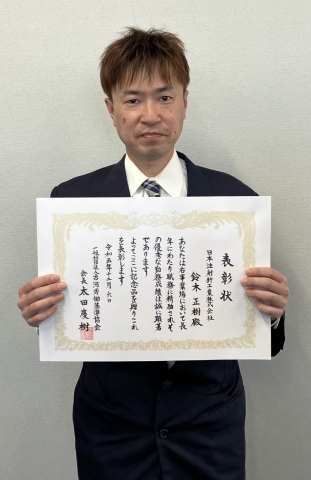 表彰状
日本注射針工業株式会社
鈴木正樹殿
あなたは右事業場において長
年にわたり職務に精励されそ
の優秀な勤務成績は誠に顕著
であります
よってここに記念品を贈りこれ
を表彰します
令和五年十月六日
一般社団法人古河労働基準協会
会長太田慶樹